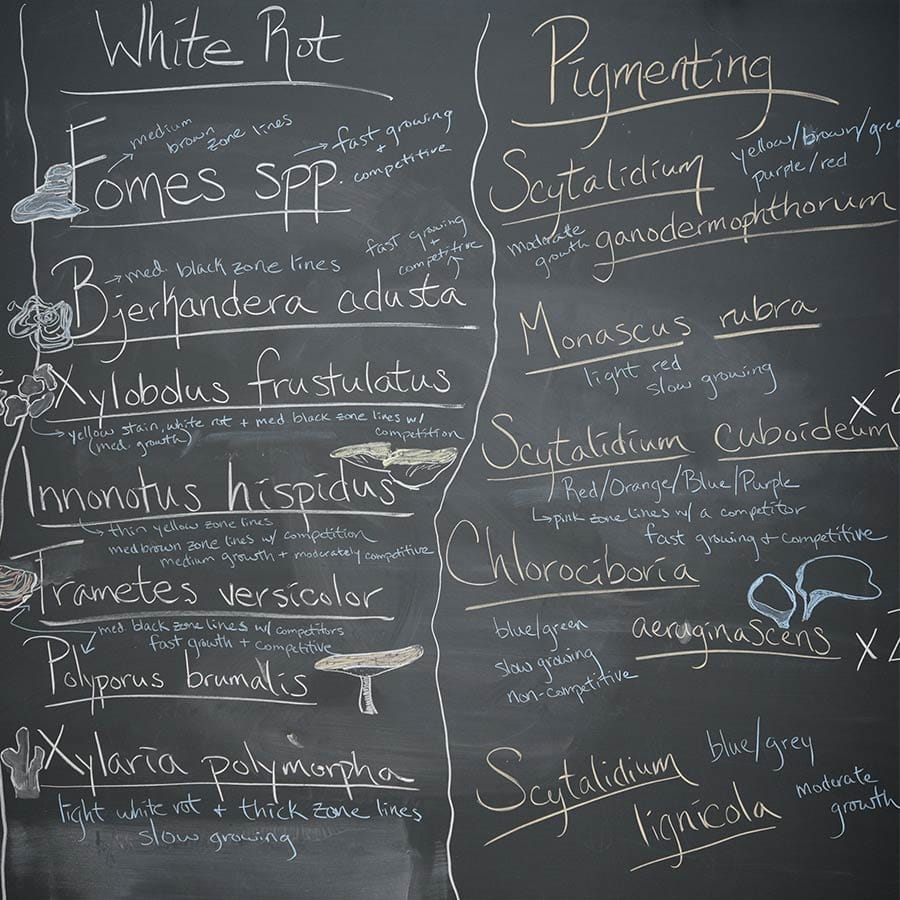 White Rot
medium
brown zone lines
fast growing
+
competitive
Fomes spp.
fast growing
+
competitive
med. black zone lines
Bjerkandera adusta
Xylobolus frustulatus
yellow stain, white rot + med black zone lines w/
(med. growth) competition
Innonotus hispidus
thin yellow zone lines
med brown zone lines w/ competition
medium growth + moderately competitive
Trametes versicolor
med black zone lines w/ competitors
fast growth + competitive
Polyporus brumalis
Xylaria polymorpha
light white rot + thick zone lines
slow growing
Pigmenting
Scytalidium
yellow/brown/gree
purple/red
moderate
growth
ganodermophthorum
Monascus rubra
light red
slow growing
Scytalidium cuboideum
Red/Orange/Blue/Purple
pink zone lines w/ a competitor
fast growing + competitive
Chlorociboria
aeruginascens
blue/green
slow growing
non-competitive
Scytalidium
lignicola
blue/grey
Moderate
growth